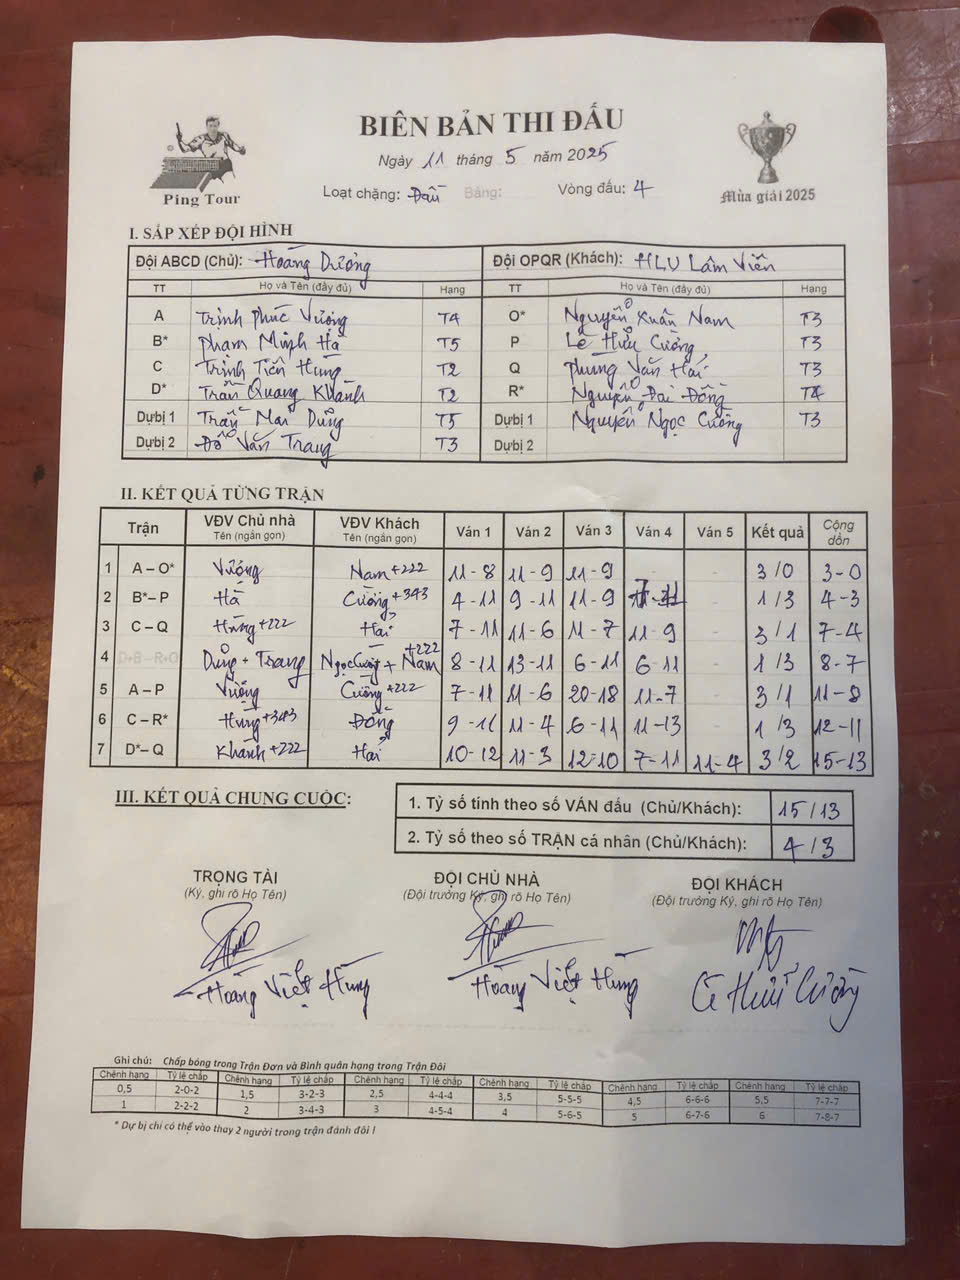 BIÊN BẢN THI ĐẤU
Ngày 11 tháng 5 năm 2025
Loạt chặng: Đấu Bảng: Vòng đấu: 4
Ping Tour
Mùa giải 2025
I. SẮP XẾP ĐỘI HÌNH
Đội ABCD (Chủ): Hoàng Dương Đội OPQR (Khách): HLV Lâm Viên
TT Họ và Tên (đầy đủ) Hạng TT Họ và Tên (đầy đủ) Hạng
A Trịnh Phúc Vương T4 O* Nguyễn Xuân Nam T3
B* Phạm Minh Hà T5 P Lê Hữu Cường T3
C Trịnh Tiến Hùng T2 Q Phùng Văn Hải T3
D* Trần Quang Khánh T2 R* Nguyễn Đại Đồng
Dự bị 1 Trần Mai Dũng T5 Dự bị 1 Nguyễn Ngọc Cường T3
Dự bị 2 Đỗ Văn Trang T3 Dự bị 2
II. KẾT QUẢ TỪNG TRẬN
Trận VĐV Chủ nhà Tên (ngắn gọn) VĐV Khách Tên (ngắn gọn) Ván 1 Ván 2 Ván 3 Ván 4 Ván 5 Kết quả Cộng dồn
1 A – O* Vương Nam+222 11-8 11-9 11-9 - - 3/0 3-0
2 B*– P Hà Cường+343 4-11 9-11 11-9 - 1/3 4-3
3 C – Q Hùng+222 Hải 7-11 11-6 11-7 11-9 - 3/1 7-4
4 D+B – R+O Dũng + Trang Ngọc Cường + Nam +222 8-11 13-11 6-11 6-11 - 1/3 8-7
5 A – P Vương Cường+222 7-11 11-6 20-18 11-7 - 3/1 11-8
6 C – R* Hùng+343 Đồng 9-11 11-4 6-11 11-13 - 1/3 12-11
7 D*– Q Khánh+222 Hải 10-12 11-3 12-10 7-11 11-4 3/2 15-13
III. KẾT QUẢ CHUNG CUỘC:
1. Tỷ số tính theo số VÁN đấu (Chủ/Khách): 15/13
2. Tỷ số theo số TRẬN cá nhân (Chủ/Khách): 4/3
TRỌNG TÀI ĐỘI CHỦ NHÀ ĐỘI KHÁCH
(Ký, ghi rõ Họ Tên) (Đội trưởng Ký, ghi rõ Họ Tên) (Đội trưởng Ký, ghi rõ Họ Tên)
Hoàng Việt Hùng Hoàng Việt Hùng Lê Hữu Cường
Ghi chú: Chấp bóng trong Trận Đơn và Bình quân hạng trong Trận Đôi
Chênh hạng Tỷ lệ chấp Chênh hạng Tỷ lệ chấp Chênh hạng Tỷ lệ chấp Chênh hạng Tỷ lệ chấp Chênh hạng Tỷ lệ chấp Chênh hạng Tỷ lệ chấp
0,5 2-0-2 1,5 3-2-3 2,5 4-4-4 3,5 5-5-5 4,5 6-6-6 5,5 7-7-7
1 2-2-2 2 3-4-3 3 4-5-4 4 5-6-5 5 6-7-6 6 7-8-7
* Dự bị chỉ có thể vào thay 2 người trong trận đánh đôi !